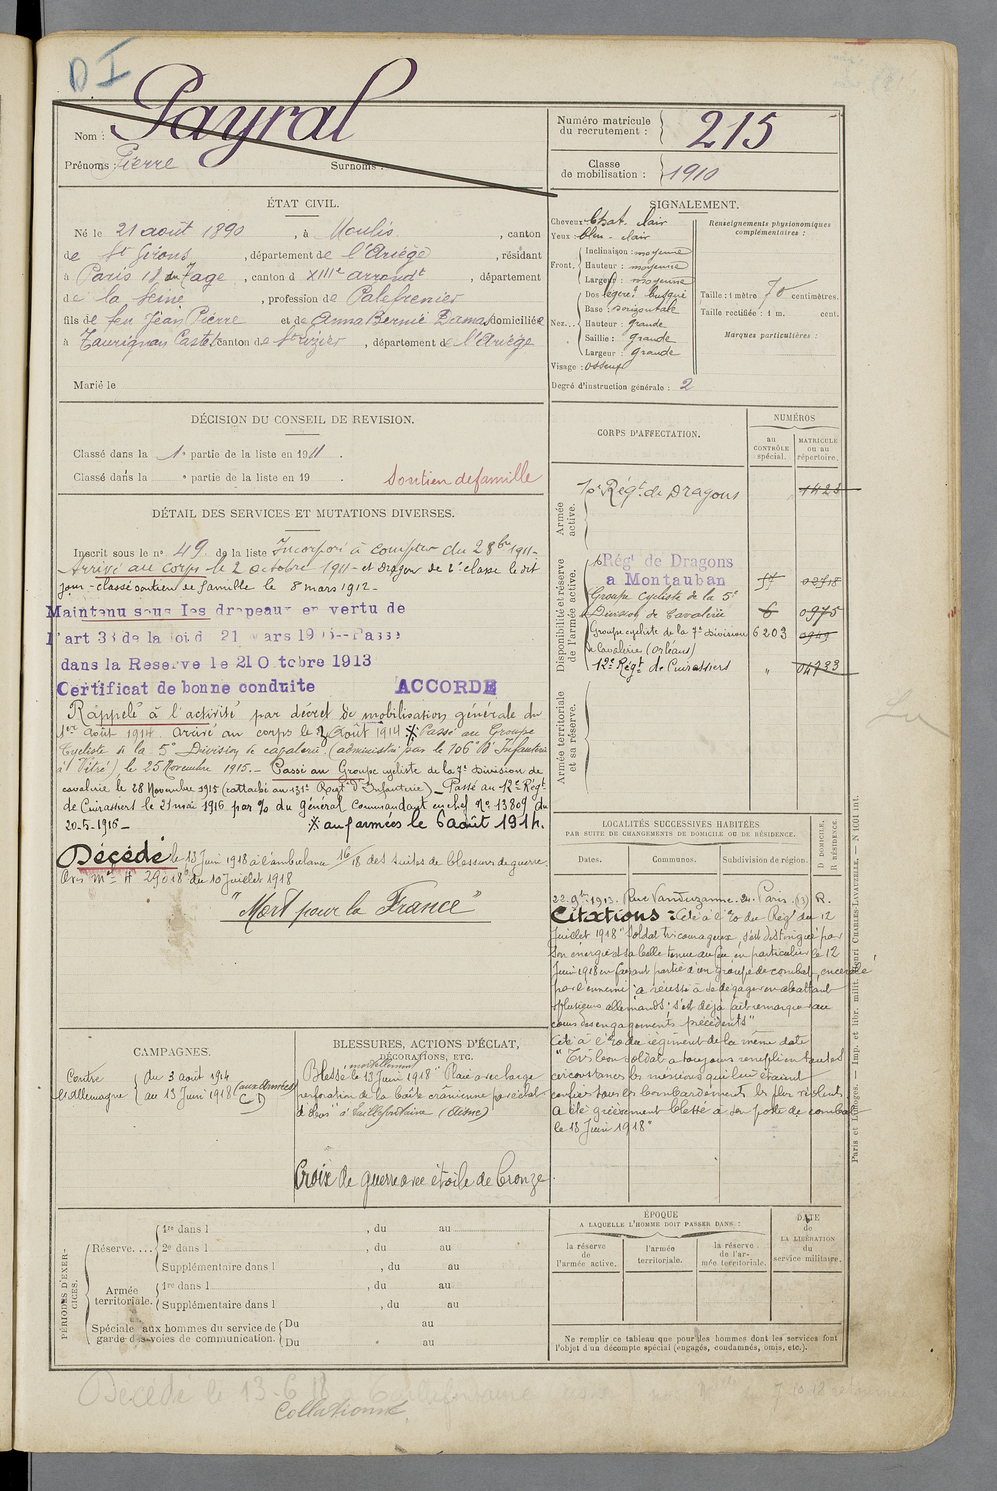 D I
Nom : Payral
Prénoms : Pierre Surnoms :
Numéro matricule
du recrutement : 215
Classe
de mobilisation : 1910
ÉTAT CIVIL.
Né le 21 août 1890, à Moulis, canton
de St Girons, département de l'Ariège, résidant
à Paris 18 du Tage, canton d XIIIe arrondt, département
de la Seine, profession de Palefrenier
fils de feu Jean Pierre et de Anna Bernié Damas domiciliée
à Taurignan Castet canton de St Lizier, département de l'Ariège
Marié le
SIGNALEMENT.
Cheveux Chat. clair
Yeux bleu clair
Front. Inclinaison : moyenne
Hauteur : moyenne
Largeur : moyenne
Nez... Dos légèret busqué
Base : horizontale
Hauteur : grande
Saillie : grande
Largeur : grande
Visage : osseux
Degré d'instruction générale : 2
Renseignements physionomiques
complémentaires :
Taille : 1 mètre 70 centimètres.
Taille rectifiée : 1 m. cent.
Marques particulières :
DÉCISION DU CONSEIL DE REVISION.
Classé dans la 1e partie de la liste en 1911.
Classé dans la e partie de la liste en 19 .
Soutien de famille
DÉTAIL DES SERVICES ET MUTATIONS DIVERSES.
Inscrit sous le no 49 de la liste Incorporé à compter du 2 8bre 1911-
Arrivé au corps le 2 octobre 1911 - et dragon de 2e classe le dit
jour - classé soutien de famille le 8 mars 1912 -
Maintenu sous les drapeaux en vertu de
l'art 33 de la loi d 21 mars 19 5 -- Passé
dans la Reserve le 21 Octobre 1913
Certificat de bonne conduite ACCORDÉ
Rappelé à l'activité par décret de mobilisation générale du
1er août 1914. arrivé au corps le 3 Août 1914 ※ Passé au Groupe
Cycliste de la 5e Division de cavalerie (administré par le 106e Bn Infanterie
à Vitré) le 25 Novembre 1915. - Passé au Groupe cycliste de la 7e division de
cavalerie le 28 Novembre 1915 (rattaché au 131e Regt d'Infanterie) - Passé au 12e Régt
de Cuirassiers le 21 mai 1916 par % du général Commandant en chef No 13809 du
20-5-1916 - ※ aux armées le 6 août 1914.
Décédé le 13 Juin 1918 à l'ambulance 16/18 des suites de blessures de guerre
Avis Mel A 29018 du 10 juillet 1918
"Mort pour la France"
CORPS D'AFFECTATION.
NUMÉROS
au
CONTRÔLE
spécial.
MATRICULE
ou au
répertoire.
Armée
active.
10e Régt de Dragons 1428
Disponibilité et réserve
de l'armée active.
Rég' de Dragons
a Montauban 02718
Groupe cycliste de la 5e
Division de Cavalerie 6 0975
Groupe cycliste de la 7e division 6203 0949
de cavalerie (Orléans)
12e Régt de Cuirassiers " 04783
Armée territoriale
et sa réserve.
LOCALITÉS SUCCESSIVES HABITÉES
PAR SUITE DE CHANGEMENTS DE DOMICILE OU DE RÉSIDENCE.
Dates. Communes. Subdivision de région.
D DOMICILE,
R RÉSIDENCE.
22 9bre 1913. Rue Vandrezanne. 24. Paris (13) R.
Citations : Cité à l'O du Régt du 12
Juillet 1918 "Soldat très courageux, s'est distingué par
son énergie et sa belle tenue au feu en particulier le 12
Juin 1918 en faisant partie d'un groupe de combat, encerclé
par l'ennemi a réussi à se dégager en abattant
plusieurs allemands ; s'est déjà fait remarquer au
cours des engagements précédents"
Cité à l'O du régiment de la même date
"Très bon soldat a toujours rempli en toutes
circonstances les missions qui lui étaient
confiées sous les bombardements les plus violents
A été grièvement blessé à son poste de combat
le 13 Juin 1918"
CAMPAGNES.
Contre
l'Allemagne
du 3 août 1914
au 13 Juin 1918 (aux armées)
CD
BLESSURES, ACTIONS D'ÉCLAT,
DÉCORATIONS, ETC.
mortellement
Blessé le 13 Juin 1918 "Plaie avec large
perforation de la boîte crânienne par éclat
d'obus à Taillefontaine (Aisne)
Croix de guerre avec étoile de bronze
PÉRIODES D'EXERCICES.
Réserve.... 1re dans l , du au
2e dans l , du au
Supplémentaire dans l , du au
Armée
territoriale. 1re dans l , du au
Supplémentaire dans l , du au
Spéciale aux hommes du service de
garde des voies de communication. Du au
Du au
ÉPOQUE
A LAQUELLE L'HOMME DOIT PASSER DANS :
la réserve
de
l'armée active.
l'armée
territoriale.
la réserve
de l'ar-
mée territoriale.
DATE
de
LA LIBÉRATION
du
service militaire.
Ne remplir ce tableau que pour les hommes dont les services font
l'objet d'un décompte spécial (engagés, condamnés, omis, etc.).
Paris et Limoges. — Imp. et libr. milit. Henri CHARLES-LAVAUZELLE. — N 1001 int.
Lu
Décédé le 13-6-18 à Taillefontaine
Collationné